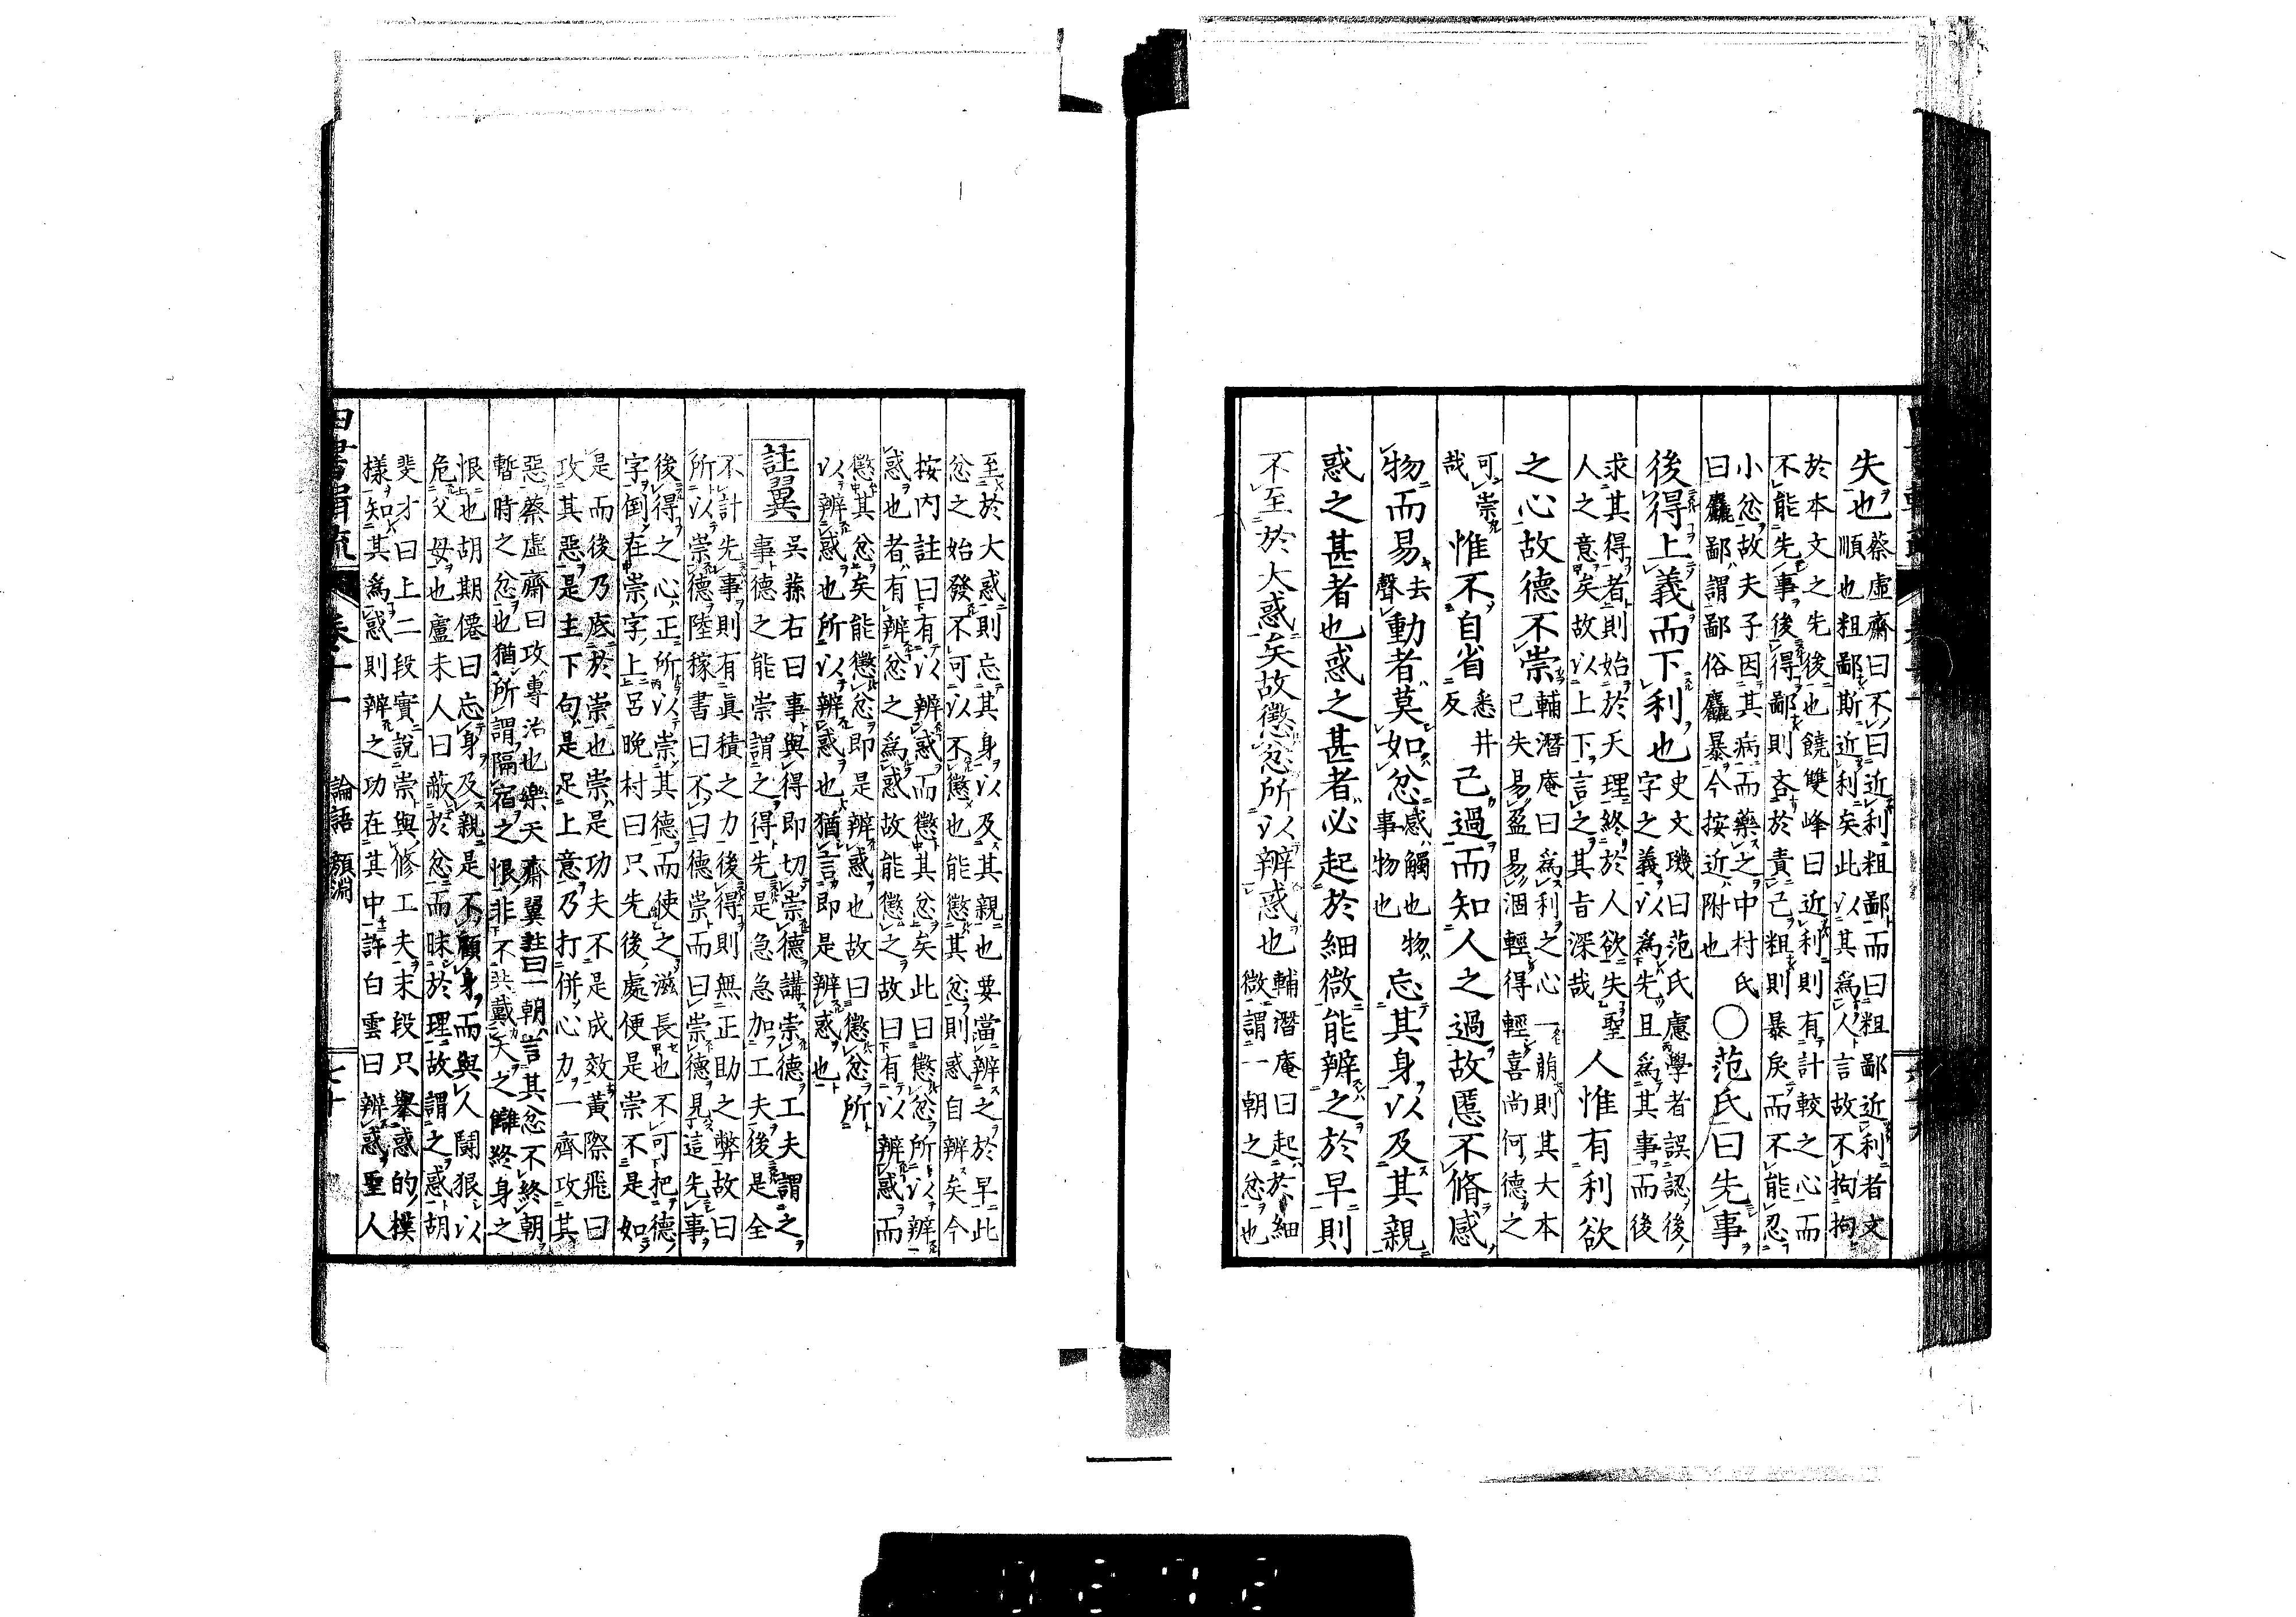 失也蔡虛齋曰不曰近利粗鄙而曰粗鄙近利者文
順也粗鄙斯近利矣此以其爲人言故不拘拘
於本文之先後也饒雙峰曰近利則有計較之心而
不能先事後得鄙則吝於責己粗則暴戾而不能忍
小忿故夫子因其病而藥之中村氏〇范氏曰先事
曰麤鄙謂鄙俗麤暴今按近附也
後得上義而下利也史文璣曰范氏慮學者誤認後
字之義以爲先且爲其事而後
求其得者則始於天理終於人欲失聖人惟有利欲
人之意矣故以上下言之其旨深哉
之心故德不崇輔潛庵曰爲利之心一萠則其大本
已失易盈易涸輕得輕喜尚何德之
可崇惟不自省悉井己過而知人之過故慝不脩感
哉反
物而易去動者莫如忿感觸也物忘其身以及其親
聲事物也
惑之甚者也惑之甚者必起於細微能辨之於早則
不至於大惑矣故懲忿所以辨惑也輔潛庵曰起於細
微謂一朝之忿也
至於大惑則忘其身以及其親也要當辨之於早此
忿之始發不可以不懲也能懲其忿則惑自辨矣今
按内註曰有以辨惑而懲其忿矣此曰懲忿所以辨
惑也者有辨忿之爲惑故能懲之故曰有以辨惑而
懲其忿矣能懲忿即是辨惑也故曰懲忿所
以辨惑也所以辨惑也猶言即是辨惑也
註翼 吳蓀右曰事與得即切崇德講崇德工夫謂之
事德之能崇謂之得先是急急加工夫後是全
不計先事則有眞積之力後得則無正助之弊故曰
所以崇德陸稼書曰不曰德崇而曰崇德見這先事
後得之心正所以崇其德而使之滋長也不可把德
字倒在崇字上呂晚村曰只先後處便是崇不是如
是而後乃底於崇也崇是功夫不是成效黃際飛曰
攻其惡是主下句是足上意乃打併心力一齊攻其
惡蔡虛齋曰攻專治也樂天齋翼註曰一朝言其忿不終朝
暫時之忿也猶所謂隔宿之恨非不共戴天之讎終身之
恨也胡期僊曰忘身及親是不顧身而與人鬪狠以
危父母也盧未人曰蔽於忿而昧於理故謂之惑胡
斐才曰上二段實說崇與修工夫末段只擧惑的㨾
樣知其爲惑則辨之功在其中許白雲曰辨惑聖人
四書 卷十一 論語 顏淵 七十